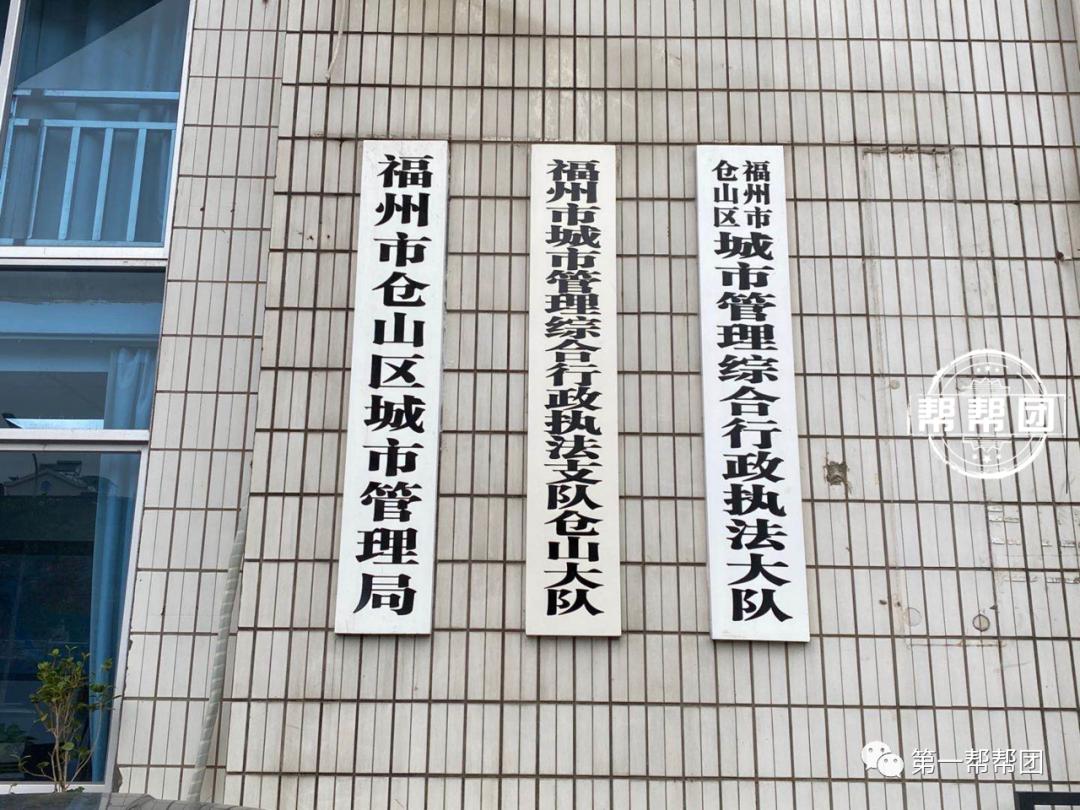 福州市仓山区城市管理局
福州市城市管理综合行政执法支队仓山大队
福州市
仓山区
城市管理综合行政执法大队
帮帮团
第一帮帮团